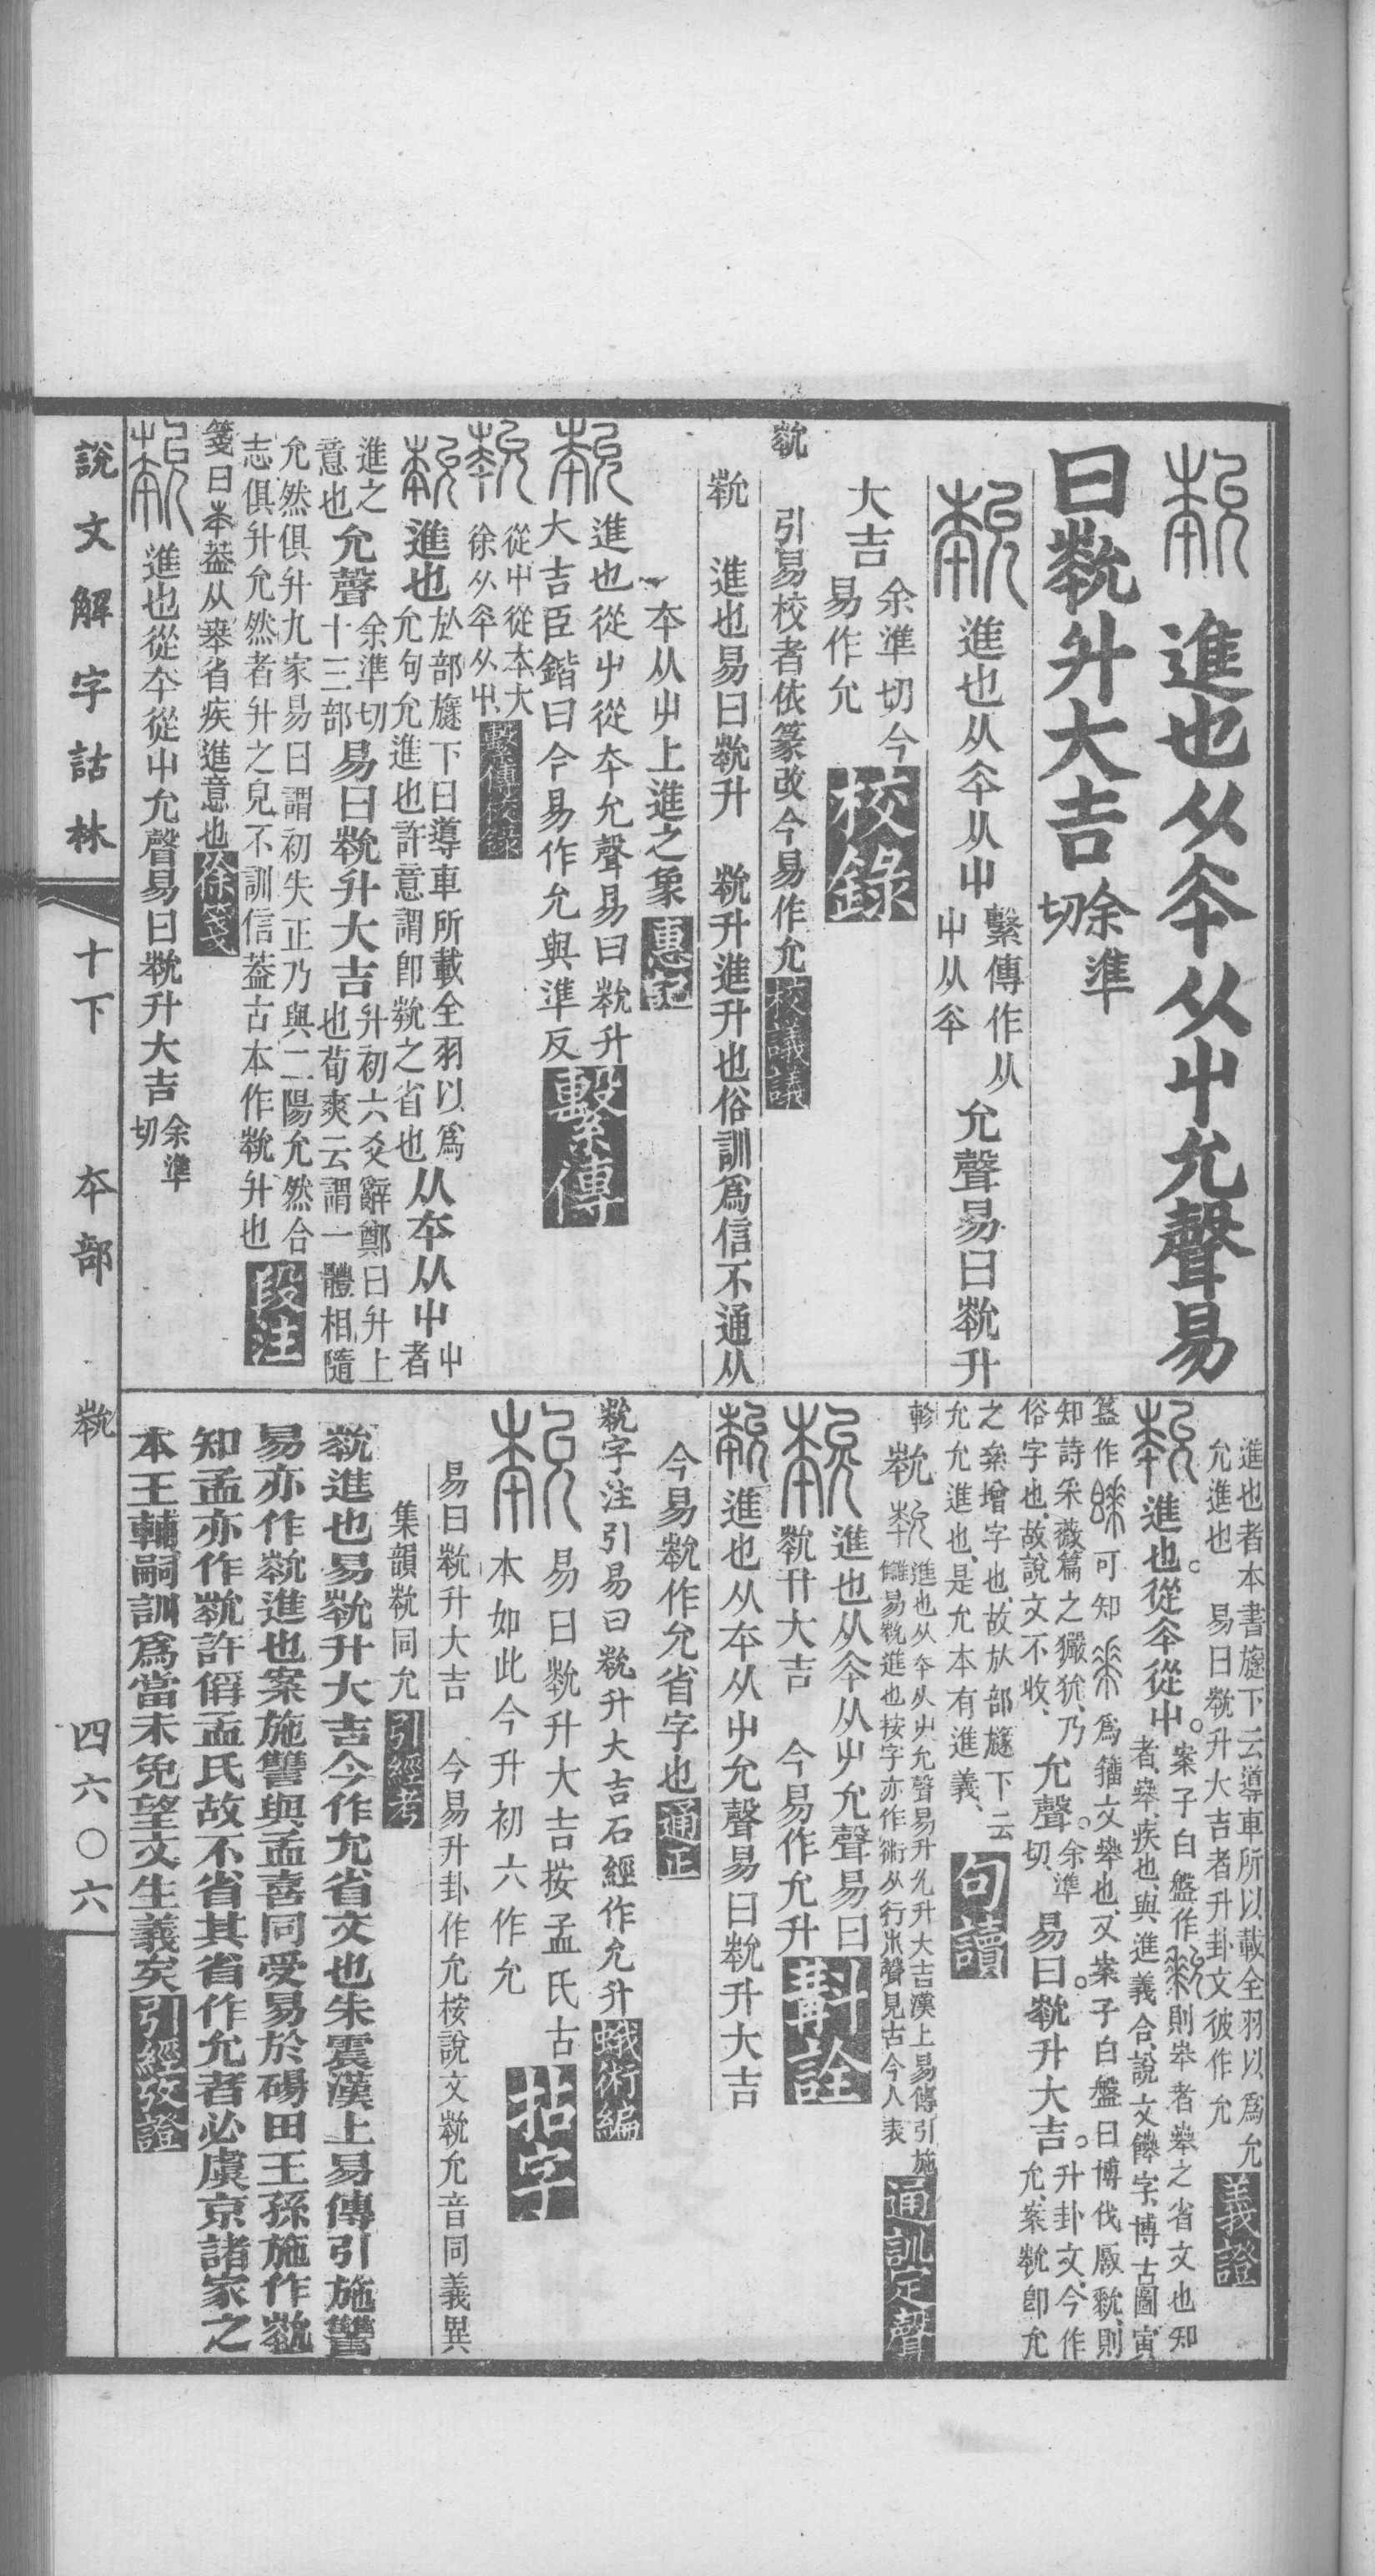 進也从夲从屮允聲易
曰𡴞升大吉余準切
進也从夲从屮繫傳作从屮从夲允聲易曰𡴞升
大吉余準切今易作允校錄
𡴞 引易校者依篆改今易作允校議議
𡴞 進也易曰𡴞升 𡴞升進升也俗訓爲信不通从
夲从屮上進之象惠記
進也從屮從夲允聲易曰𡴞升
大吉臣鍇曰今易作允與準反繫傳
從屮從夲大徐从夲从屮繫傳校錄
進也㫃部旞下曰導車所載全羽以爲允句允進也許意謂卽𡴞之省也从夲从屮屮者
進之意也允聲余準切十三部易曰𡴞升大吉升初六爻辭鄭曰升上也荀爽云謂一體相隨
允然俱升九家易曰謂初失正乃與二陽允然合志俱升允然者升之皃不訓信葢古本作𡴞升也段注
箋曰夲葢从𠦪省疾進意也徐箋
進也從夲從屮允聲易曰𡴞升大吉余準切
說文解字詁林 十下 夲部 𡴞 四六〇六
進也者本書旞下云導車所以載全羽以爲允允進也 易曰𡴞升大吉者升卦文彼作允義證
進也。從夲從屮。案子白盤作
則𠦪者𠦪之省文也知
者𠦪、疾也、與進義合、說文餴字、博古圖、寅
簋作 可知 爲籒文𠦪也、又案子白盤曰博伐厰𡴞、則
知詩采薇篇之玁狁、乃俗字也、故說文不收、允聲。余準切、易曰。𡴞升大吉。升卦文、今作允、案𡴞卽允
之絫增字也、故㫃部旞下云允允進也、是允本有進義、句讀
軫 𡴞 進也从夲从屮允聲易升允升大吉漢上易傳引施
讎易𡴞進也按字亦作㣧从行朮聲見古今人表通訓定聲
進也从夲从屮允聲易曰
𡴞升大吉 今易作允升斠詮
進也从夲从屮允聲易曰𡴞升大吉
今易𡴞作允省字也通正
𡴞字注引易曰𡴞升大吉石經作允升蛾術編
易曰𡴞升大吉按孟氏古
本如此今升初六作允拈字
易曰𡴞升大吉 今易升卦作允桉說文𡴞允音同義異
集韻𡴞同允引經考
𡴞進也易𡴞升大吉今作允省文也朱震漢上易傳引施讐
易亦作𡴞進也案施讐與孟喜同受易於碭田王孫施作𡴞
知孟亦作𡴞許偁孟氏故不省其省作允者必虞京諸家之
本王輔嗣訓爲當未免望文生義矣引經攷證